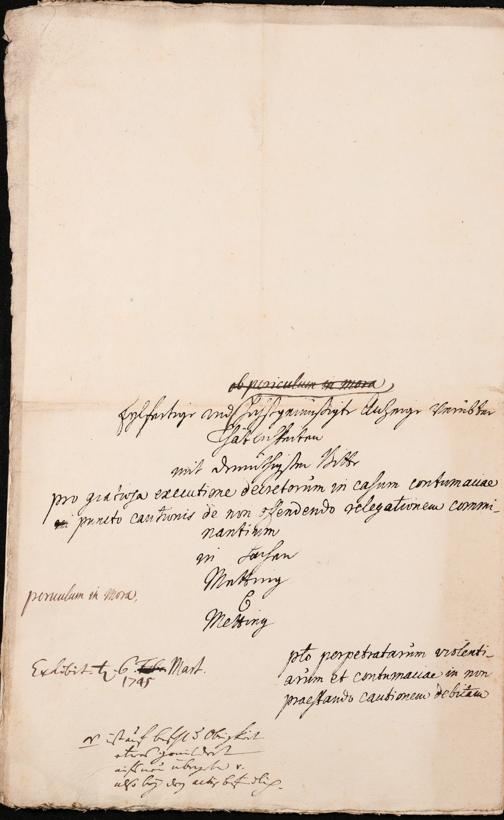 ob periculum in mora
Eylfertige und höchstgemüßigte Anzeige verübter
Thätlichkeiten
mit demüthigster Bitte
pro gratiosa executione decretorum in casum contumaciae
in puncto cautionis de non offendendo relegationem commi-
nantium
in Sachen
Metting
C
Metting
periculum in mora.
pto perpetratarum violenti-
arum et contumaciae in non
praestando cautionem debitam
Exhibit. d. 6 Feb. Mart.
1745
ist auf